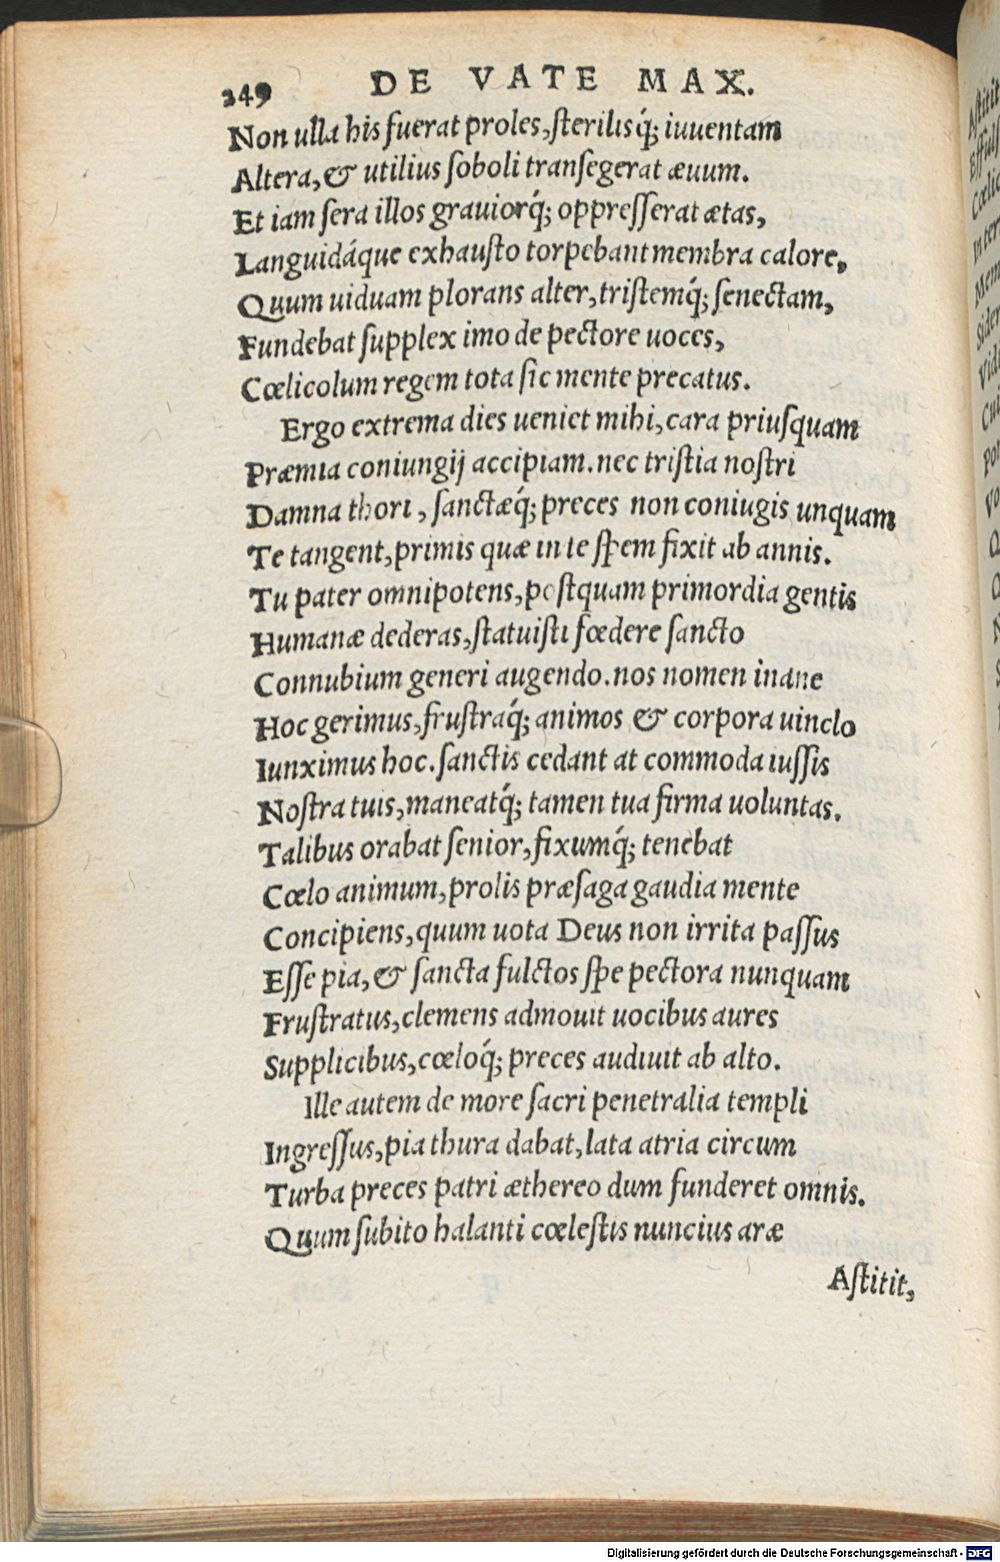 249 DE VATE MAX.
Non ulla his fuerat proles, sterilisq́; iuuentam
Altera, & utilius soboli transegerat æuum.
Et iam sera illos grauiorq́; oppresserat ætas,
Languidáque exhausto torpebant membra calore,
Quum uiduam plorans alter, tristemq́; senectam,
Fundebat supplex imo de pectore uoces,
Cœlicolum regem tota sic mente precatus.
Ergo extrema dies ueniet mihi, cara priusquam
Præmia coniungij accipiam. nec tristia nostri
Damna thori, sanctæq́; preces non coniugis unquam
Te tangent, primis quæ in te spem fixit ab annis.
Tu pater omnipotens, postquam primordia gentis
Humanæ dederas, statuisti fœdere sancto
Connubium generi augendo. nos nomen inane
Hoc gerimus, frustraq́; animos & corpora uinclo
Iunximus hoc. sanctis cedant at commoda iussis
Nostra tuis, maneatq́; tamen tua firma uoluntas.
Talibus orabat senior, fixumq́; tenebat
Cœlo animum, prolis præsaga gaudia mente
Concipiens, quum uota Deus non irrita passus
Esse pia, & sancta fulctos spe pectora nunquam
Frustratus, clemens admouit uocibus aures
Supplicibus, cœloq́; preces audiuit ab alto.
Ille autem de more sacri penetralia templi
Ingressus, pia thura dabat, lata atria circum
Turba preces patri æthereo dum funderet omnis.
Quum subito halanti cœlestis nuncius aræ
Astitit,
Digitalisierung gefördert durch die Deutsche Forschungsgemeinschaft - DFG